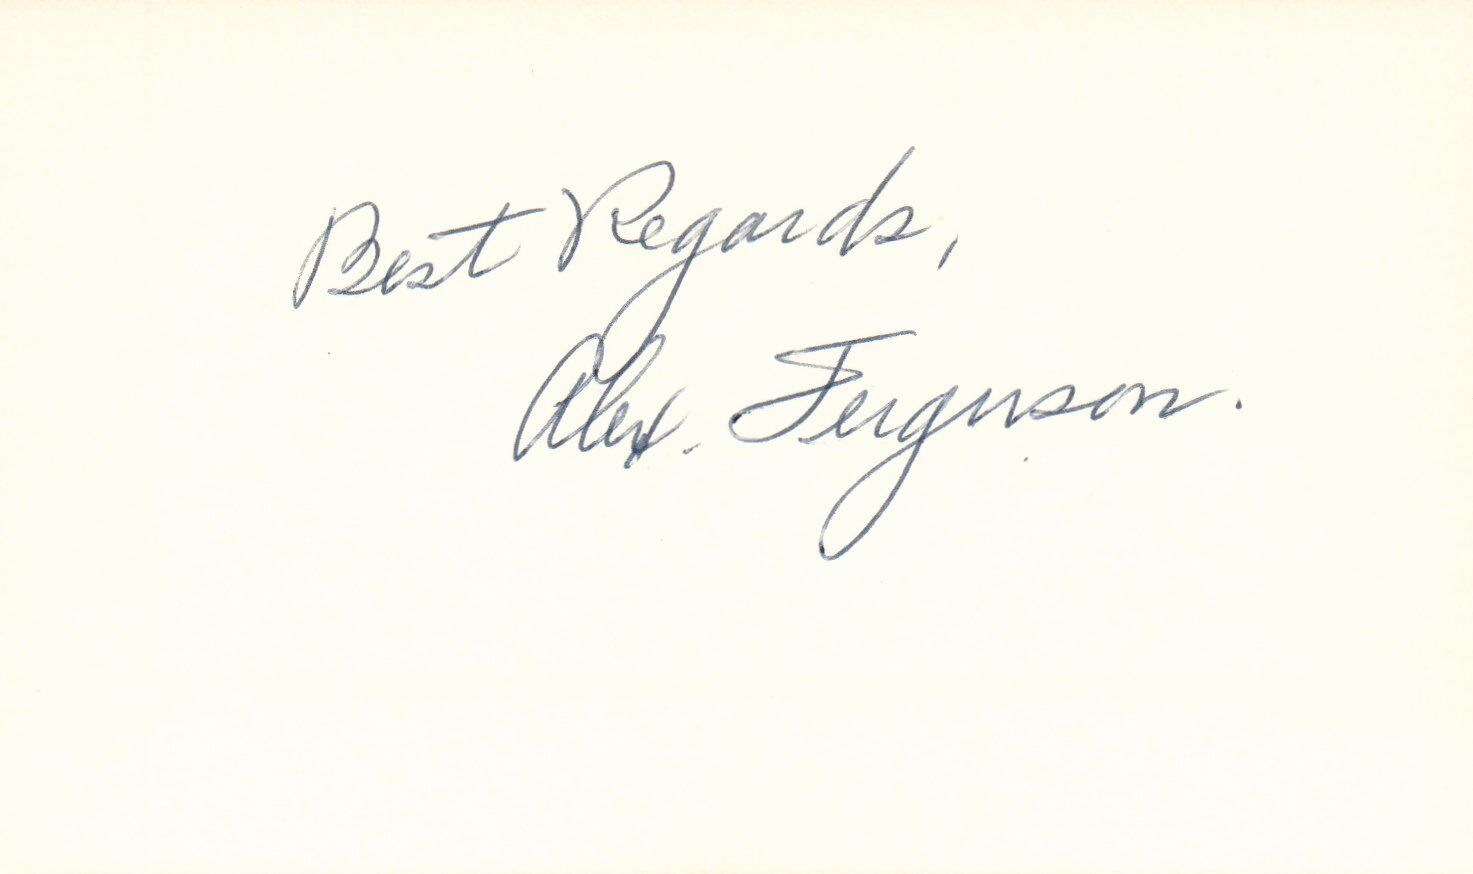 Best Regards,
Alex. Ferguson.